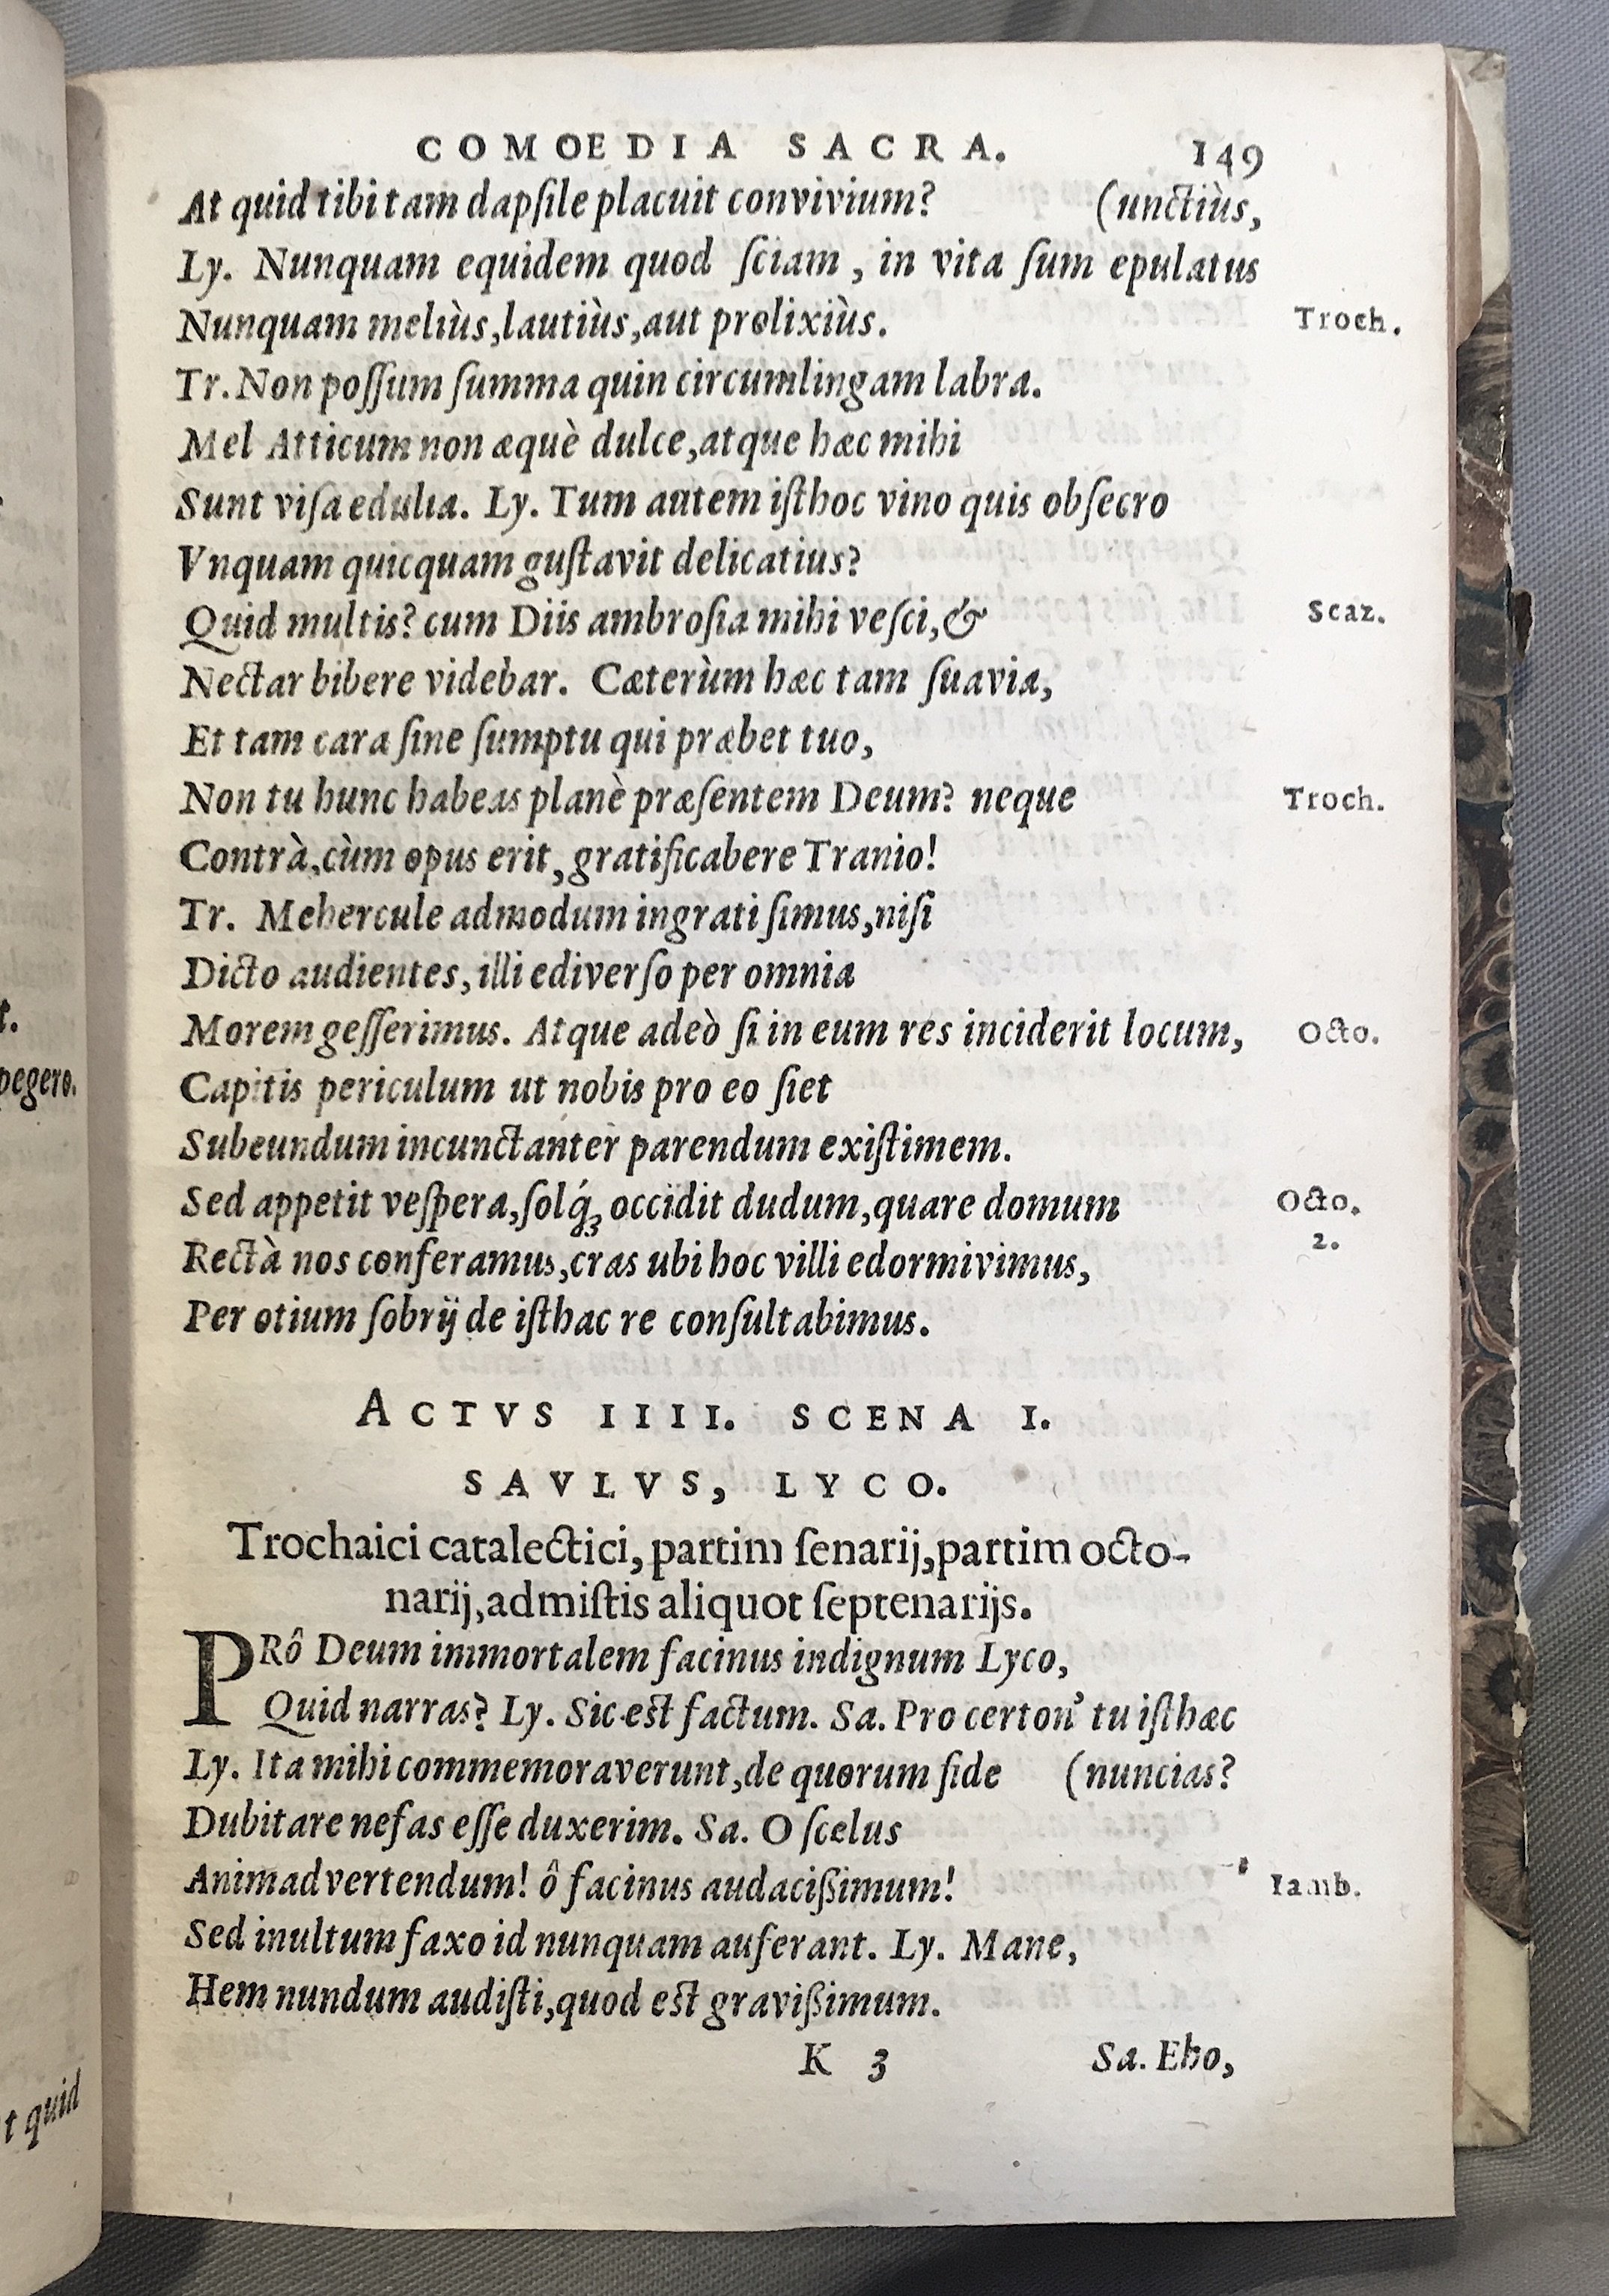 COMOEDIA SACRA. 149
At quid tibi tam dapſile placuit convivium? (unctiùs,
Ly. Nunquam equidem quod ſciam, in vita ſum epulatus
Nunquam meliùs, lautiùs, aut prolixiùs. Troch.
Tr. Non poſſum ſumma quin circumlingam labra.
Mel Atticum non æquè dulce, atque hæc mihi
Sunt viſa edulia. Ly. Tum autem iſthoc vino quis obſecro
Vnquam quicquam guſtavit delicatius?
Quid multis? cum Diis ambroſia mihi veſci, & Scaz.
Nectar bibere videbar. Cæterùm hæc tam ſuavia,
Et tam cara ſine ſumptu qui præbet tuo,
Non tu hunc habeas planè præſentem Deum? neque Troch.
Contrà, cùm opus erit, gratificabere Tranio!
Tr. Mehercule admodum ingrati ſimus, niſi
Dicto audientes, illi ediverſo per omnia
Morem geſſerimus. Atque adeò ſi in eum res inciderit locum, Octo.
Capitis periculum ut nobis pro eo ſiet
Subeundum incunctanter parendum exiſtimem.
Sed appetit veſpera, ſolq́ꝫ occidit dudum, quare domum Octo.
2.
Rectà nos conferamus, cras ubi hoc villi edormivimus,
Per otium ſobrij de iſthac re conſultabimus.
ACTVS IIII. SCENA I.
SAVLVS, LYCO.
Trochaici catalectici, partim ſenarij, partim octo-
narij, admiſtis aliquot ſeptenarijs.
PRô Deum immortalem facinus indignum Lyco,
Quid narras? Ly. Sic est factum. Sa. Pro certon' tu iſthæc
Ly. Ita mihi commemoraverunt, de quorum fide (nuncias?
Dubitare nefas eſſe duxerim. Sa. O ſcelus
Animadvertendum! ô facinus audacißimum! Iamb.
Sed inultum faxo id nunquam auferant. Ly. Mane,
Hem nundum audiſti, quod est gravißimum.
K 3 Sa. Eho,
t.
pegero.
t quid